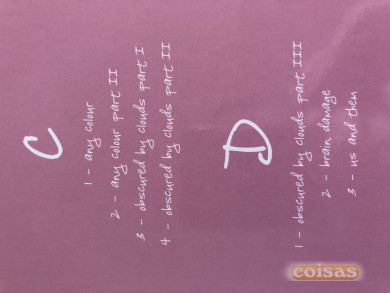 C
1 - any colour
2 - any colour part II
3 - obscured by clouds part I
4 - obscured by clouds part II
D
1 - obscured by clouds part III
2 - brain damage
3 - us and them
coisas